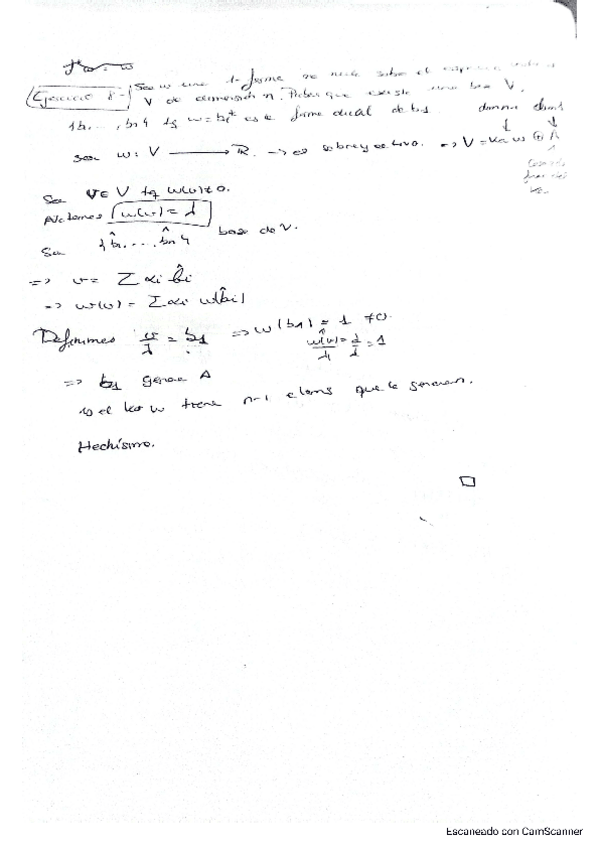 Ejercicio 8- Sea w una 1-forma no nula sobre el
V de dimensión n. Probar que existe una base V.
{b1, ..., bn} tq w = b1* es la forma dual de b1.
sea w: V → R. → es sobreyectiva. => V = Ker w ⊕ A
Sea v ∈ V tq w(v) ≠ 0.
w(v) = λ
Sea {b̂1, ..., b̂n} base de V.
=> v = Σ αi b̂i
=> w(v) = Σ αi w(b̂i)
Definimos v/λ = b1 => w(b1) = 1 ≠ 0.
w(v)/λ = λ/λ = 1
=> b1 genera A
el ker w tiene n-1 elems que le generan.
Hechísimo.
□
Escaneado con CamScanner